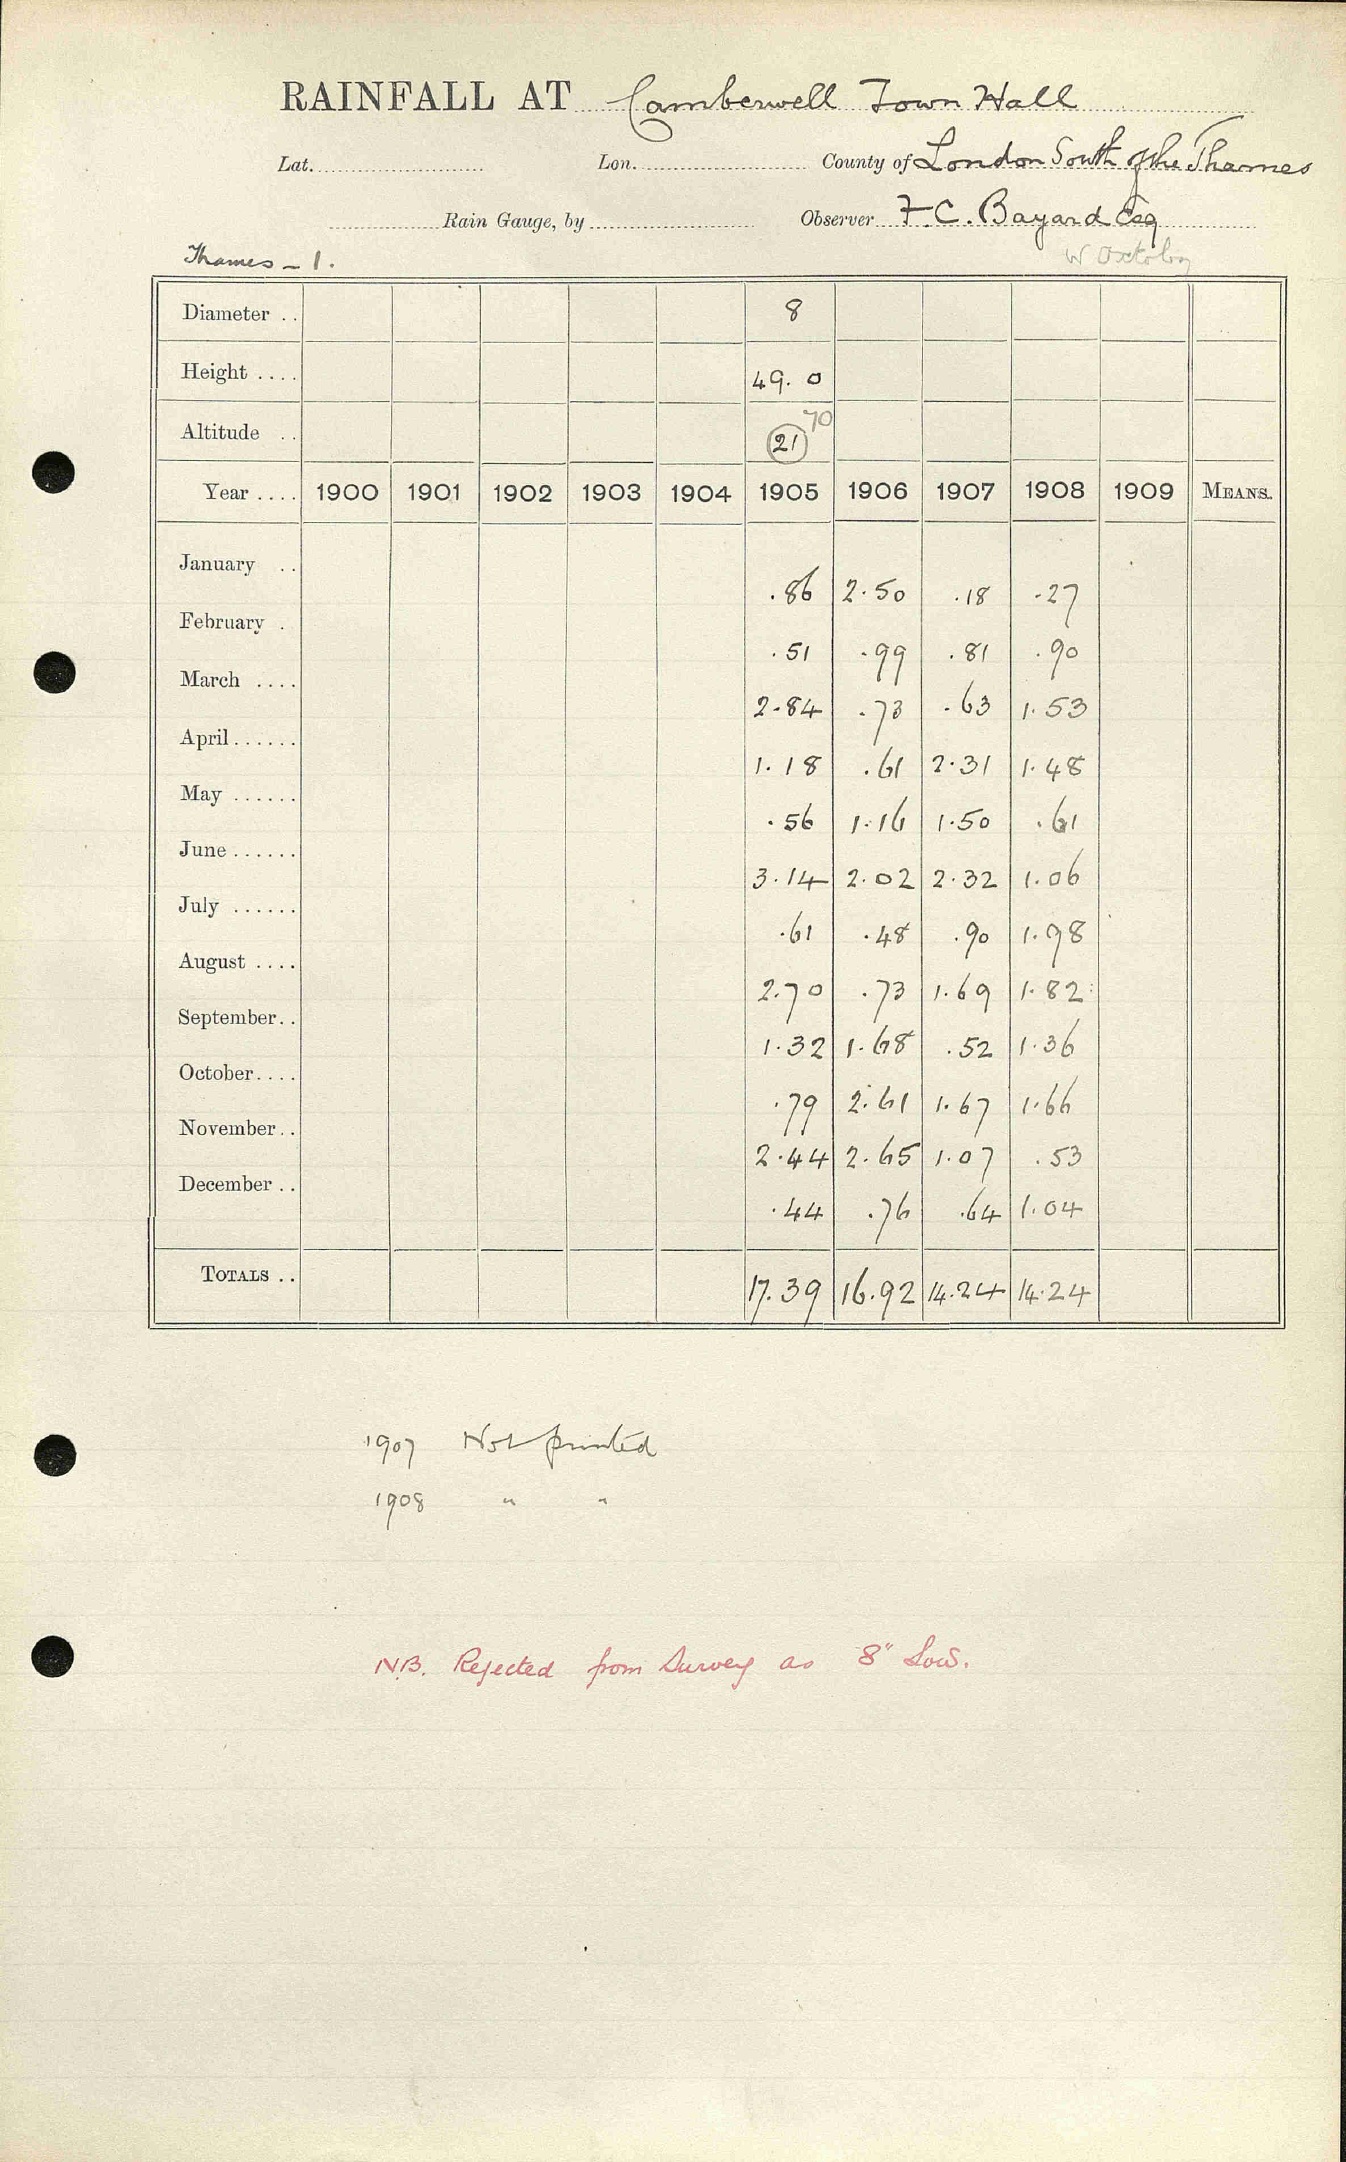 RAINFALL AT Camberwell Town Hall
Lat. Lon. County of London South of the Thames
Rain Gauge, by Observer F.C. Bayard Esq
Thames - 1. W Oxtoby
Diameter .. 8
Height .... 49. 0
Altitude .. 21 70
Year .... 1900 1901 1902 1903 1904 1905 1906 1907 1908 1909 MEANS.
January .. .86 2.50 .18 .27
February . .51 .99 .81 .90
March .... 2.84 .73 .63 1.53
April...... 1.18 .61 2.31 1.48
May ...... .56 1.16 1.50 .61
June...... 3.14 2.02 2.32 1.06
July ...... .61 .48 .90 1.98
August .... 2.70 .73 1.69 1.82
September.. 1.32 1.68 .52 1.36
October.... .79 2.61 1.67 1.66
November.. 2.44 2.65 1.07 .53
December .. .44 .76 .64 1.04
TOTALS .. 17.39 16.92 14.24 14.24
1907 Not printed
1908 " "
N.B. Rejected from Survey as 8" Low.